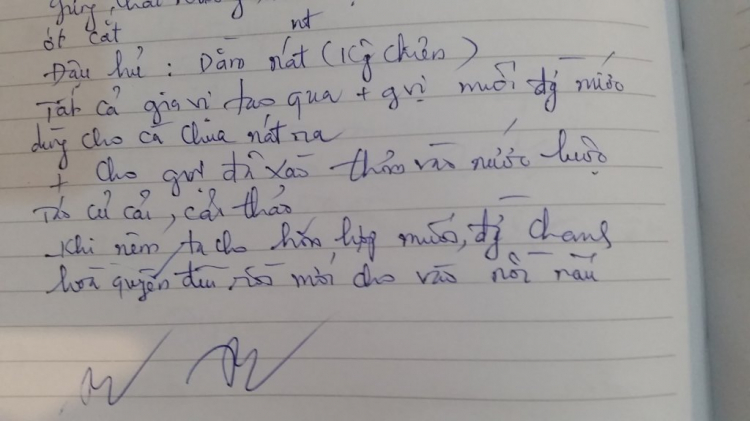 gừng,
ớt cắt nt
Đậu hủ: Dầm nát (1kg chiên)
Tất cả gia vị xào qua + gvị muối đg nước
dùng cho cà chua nát ra
+ Cho gvị đã xào thẩm vào nước luộc
củ cải, cải thảo
Khi nêm, ta cho hỗn hợp muối, đg chanh
hoà quyện đều, rồi mới cho vào nồi nấu